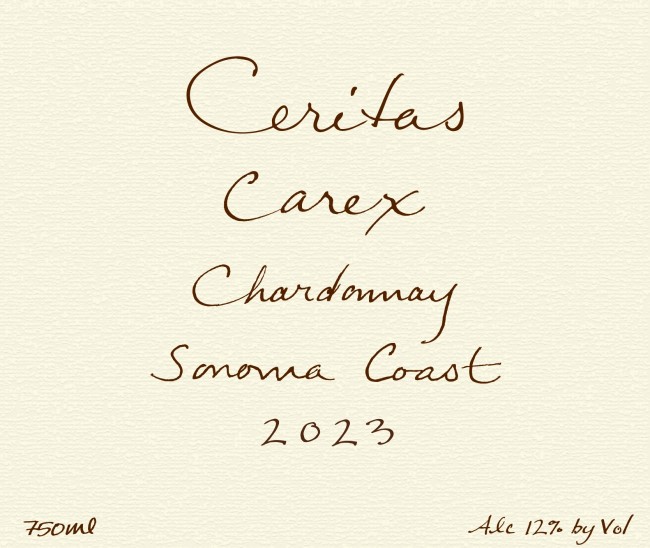 Ceritas
Carex
Chardonnay
Sonoma Coast
2023
750ml
Alc 12% by Vol